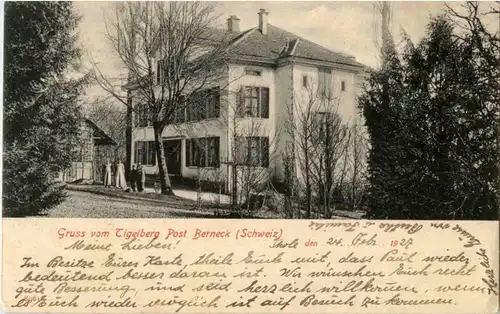 Gruss vom Tigelberg Post Berneck (Schweiz)
den 24. Feb. 1927
Meine Lieben!
Im Besitze Eures Karte, theile Euch mit, dass Paul wieder
bedeutend besser daran ist. Wir wünschen Euch recht
gute Besserung und seid herzlich willkommen, wenn
es Euch wieder möglich ist auf Besuch zu kommen.